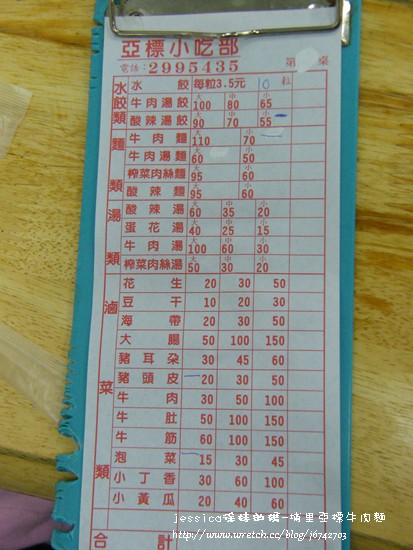 亞標小吃部
電話：2995435 第 桌
水餃類
水餃 每粒3.5元 10 粒
牛肉湯餃 大100 中80 小65
酸辣湯餃 大90 中70 小55
麵類
牛肉麵 大110 小70
牛肉湯麵 大60 小50
榨菜肉絲麵 大95 小60
酸辣麵 大95 小60
湯類
酸辣湯 大60 中35 小20
蛋花湯 大40 中25 小15
牛肉湯 大100 中60 小30
榨菜肉絲湯 大50 中30 小20
滷菜類
花生 20 30 50
豆干 10 20 30
海帶 20 30 50
大腸 50 100 150
豬耳朶 30 45 60
豬頭皮 20 30 50
牛肉 30 50 100
牛肚 50 100 150
牛筋 60 100 150
泡菜 15 30 45
小丁香 30 60 100
小黃瓜 20 40 60
合計
jessica 埔里亞標牛肉麵
http://www.wretch.cc/blog/j6742703